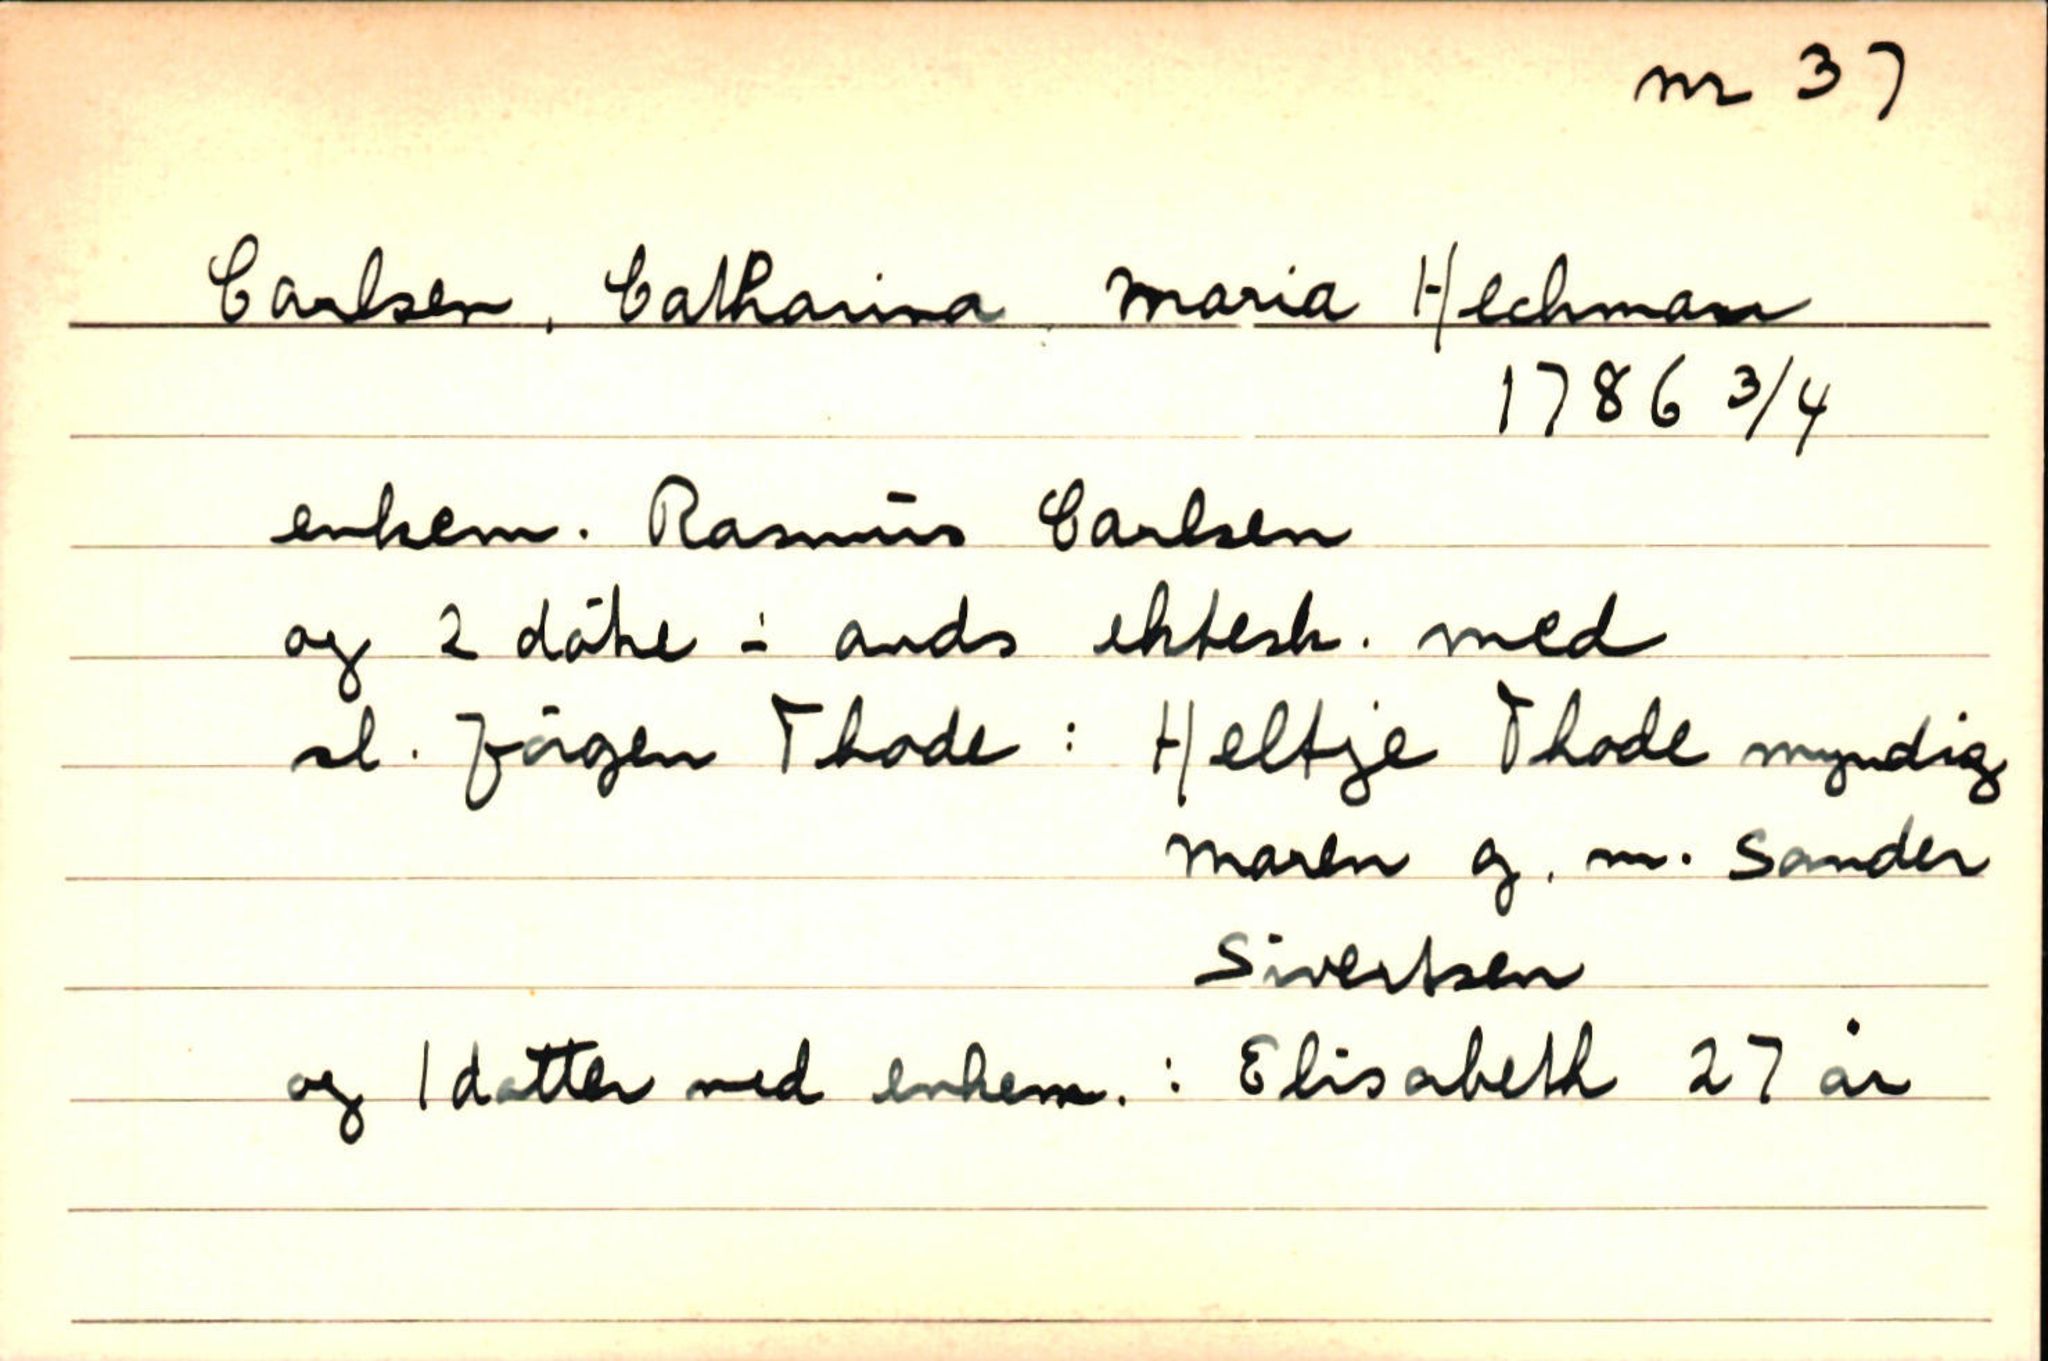 nr 37
Carlsen, Catharina Maria Hechman
1786 3/4
enkem. Rasmus Carlsen
og 2 døtre i ektesk. med
sl. Jörgen Thode : Heltje Thode myndig
Maren g. m. Sander
Sivertsen
og 1 datter med enkem. : Elisabeth 27 år